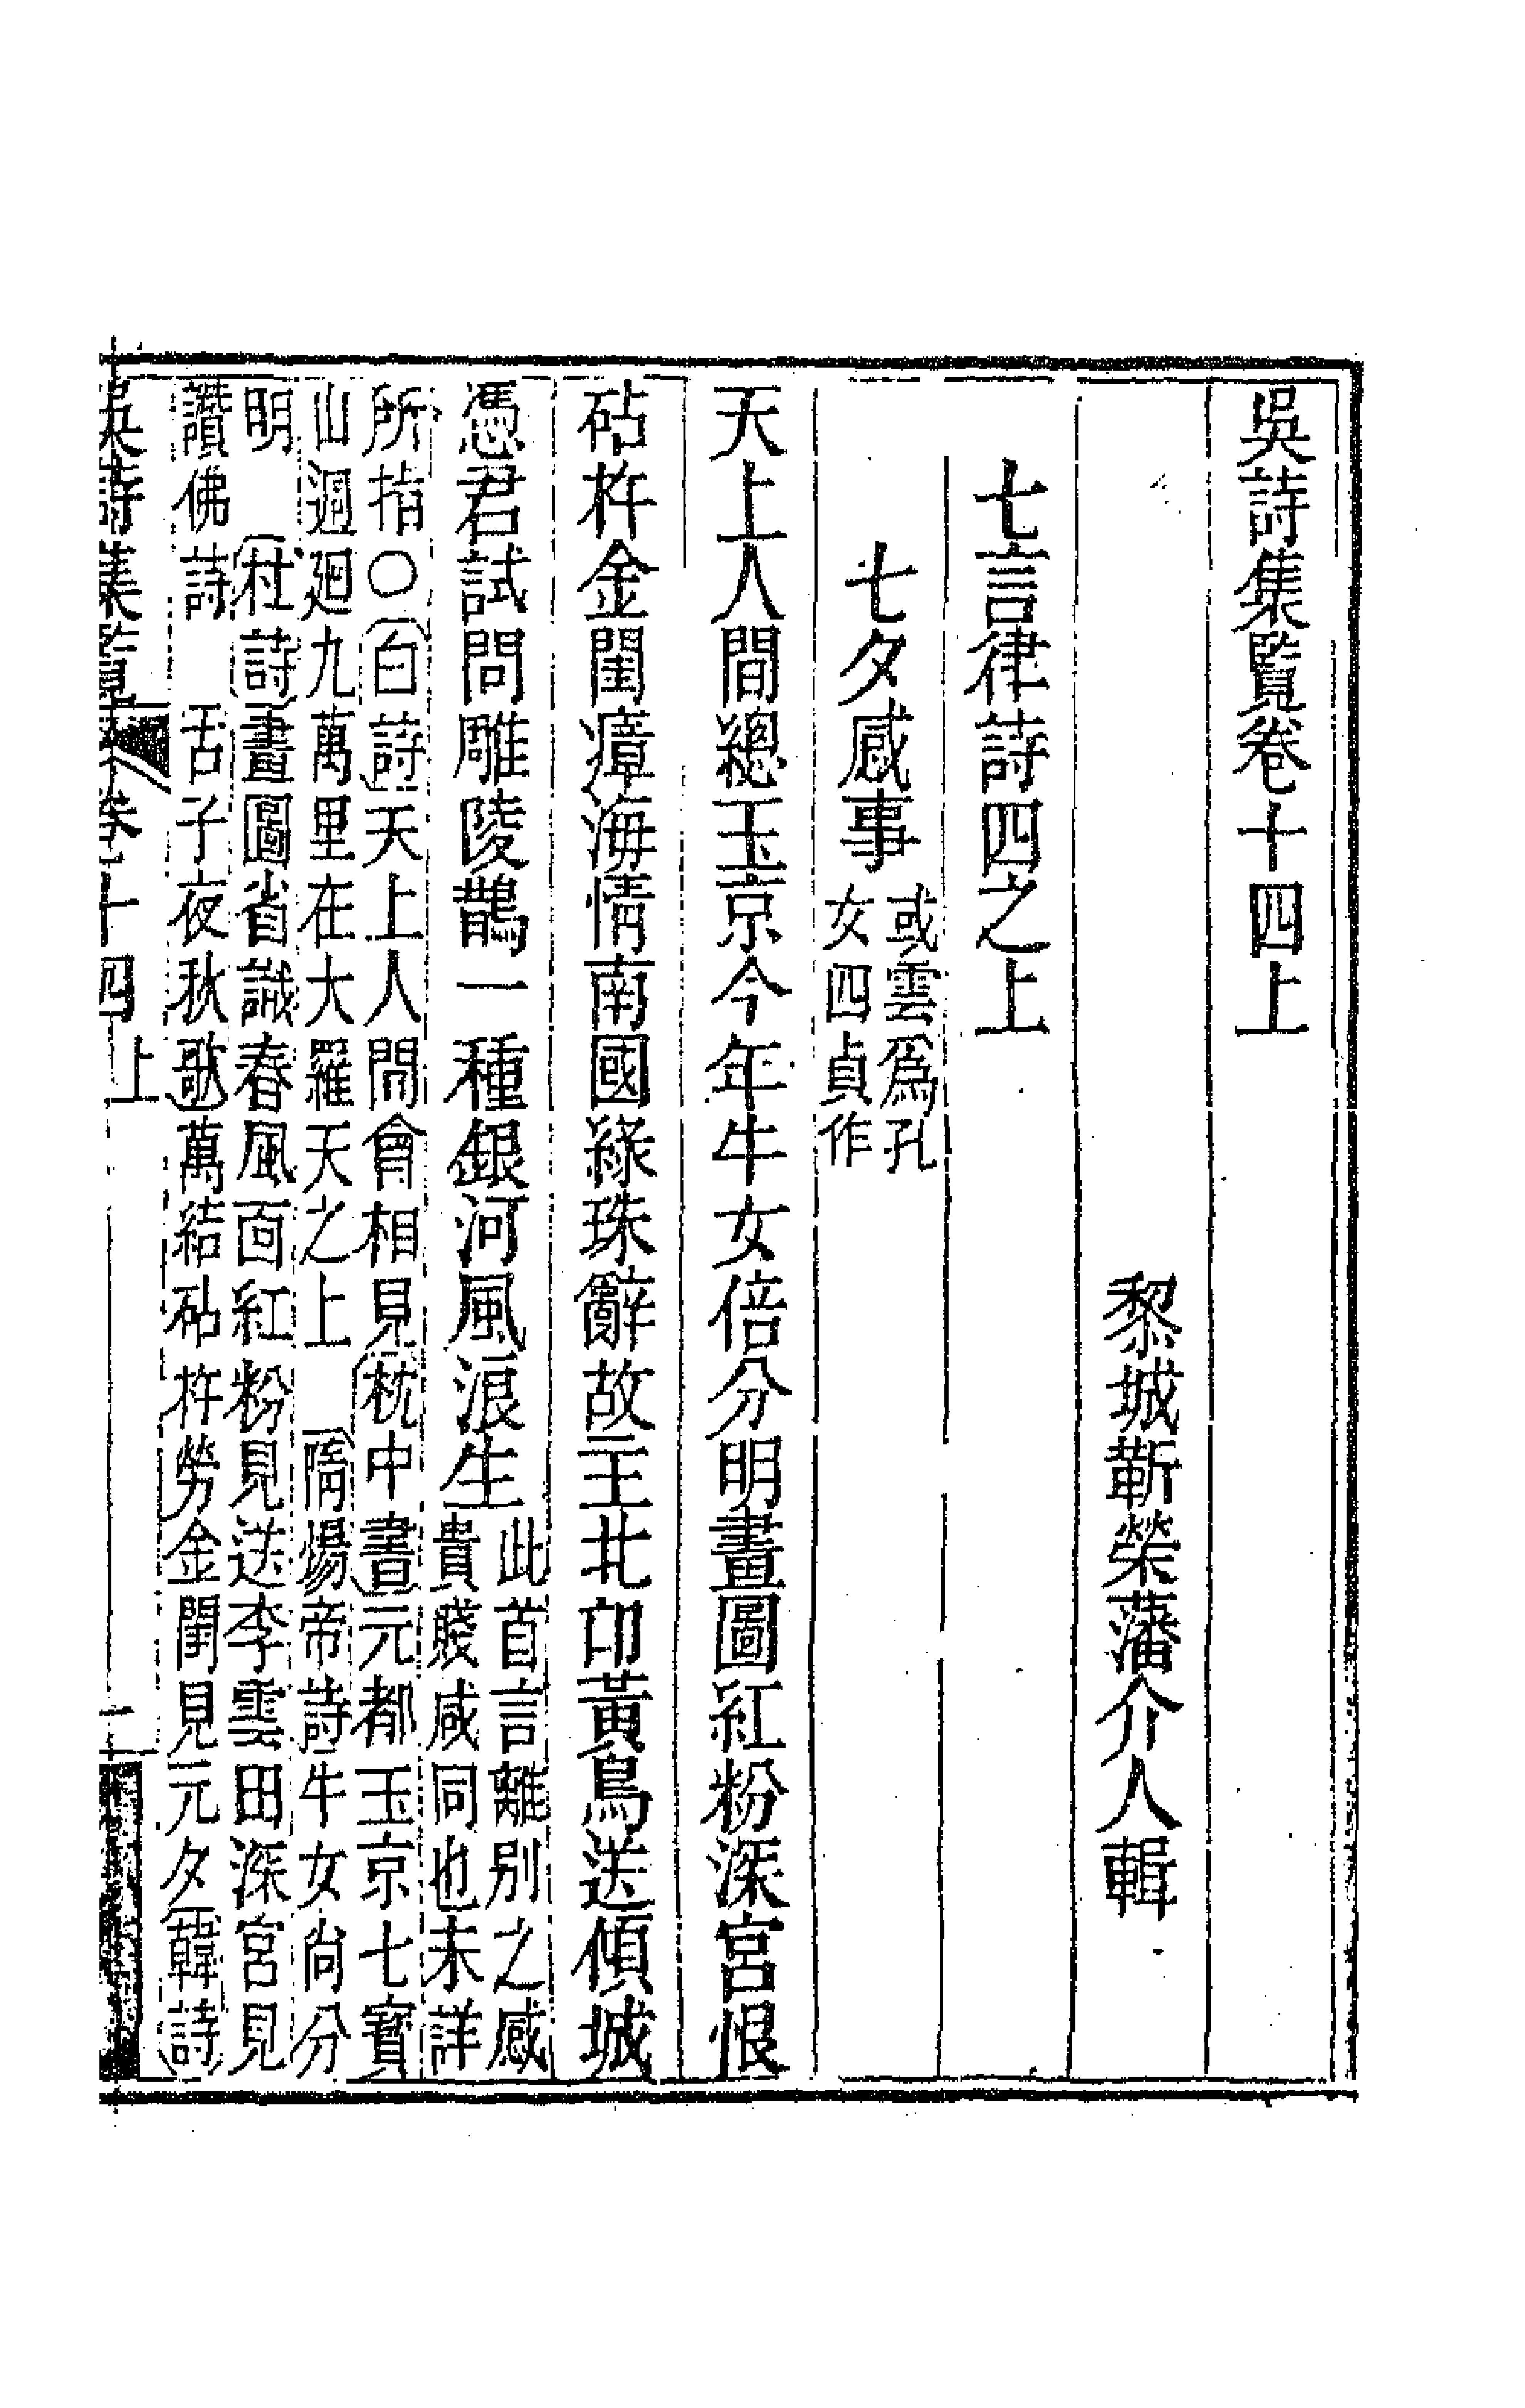 吳詩集覽卷十四上
黎城靳榮藩介人輯
七言律詩四之上
七夕感事
或雲爲孔
女四貞作
天上人間總玉京今年牛女倍分明畫圖紅粉深宮恨
砧杵金閨瘴海情南國綠珠辭故主北邙黃鳥送傾城
憑君試問雕陵鵲一種銀河風浪生
此首言離別之感
貴賤咸同也未詳
所指〇白詩天上人間會相見枕中書元都玉京七寶
山週廻九萬里在大羅天之上　隋煬帝詩牛女尚分
明　杜詩畫圖省識春風面紅粉見送李雲田深宮見
讚佛詩　古子夜秋歌萬結砧杵勞金閨見元夕韓詩
吳詩集覽　卷十四上　一